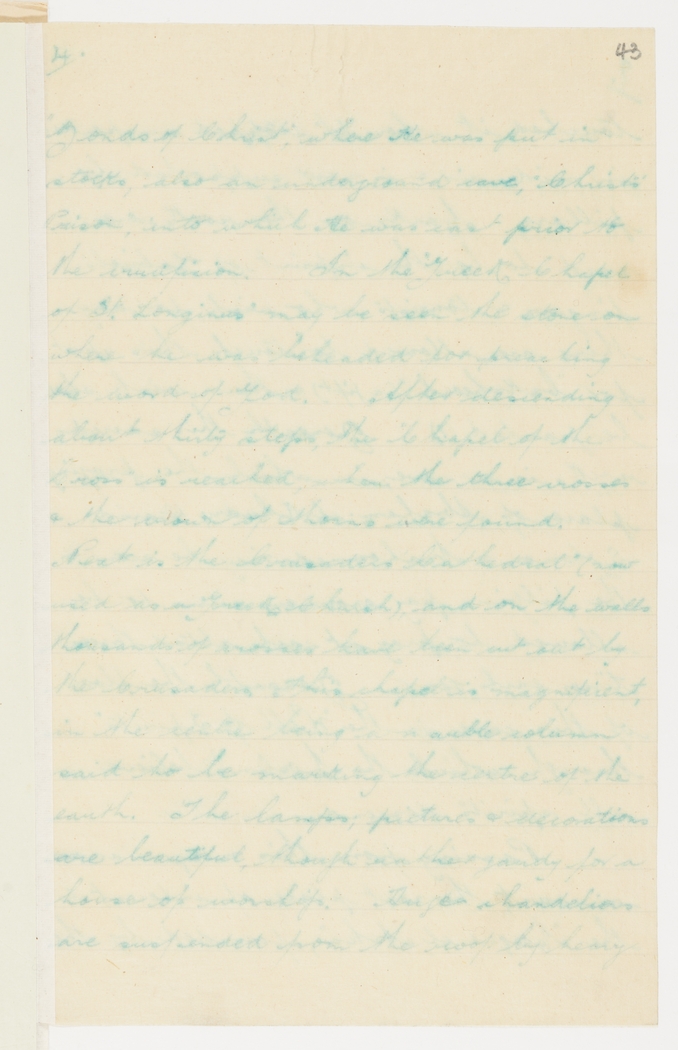 4.
43
Bonds of Christ, where He was put in
stocks, also an underground cave, "Christs
Prison", into which He was cast prior to
the crucifixion. In the "Greek Chapel
of St Longinus" may be seen the stone on
where he was beheaded for preaching
the word of God. After descending
about thirty steps, the Chapel of the
Cross is reached, when the three crosses
& the crown of thorns were found.
Next is the Crusaders Cathedral (now
used as a Greek Church), and on the walls
thousands of crosses have been cut out by
the Crusaders. This chapel is magnificent,
in the centre being a marble column
said to be marking the centre of the
earth. The lamps, pictures & decorations
are beautiful, though rather gaudy for a
house of worship. Huge chandeliers
are suspended from the roof by heavy